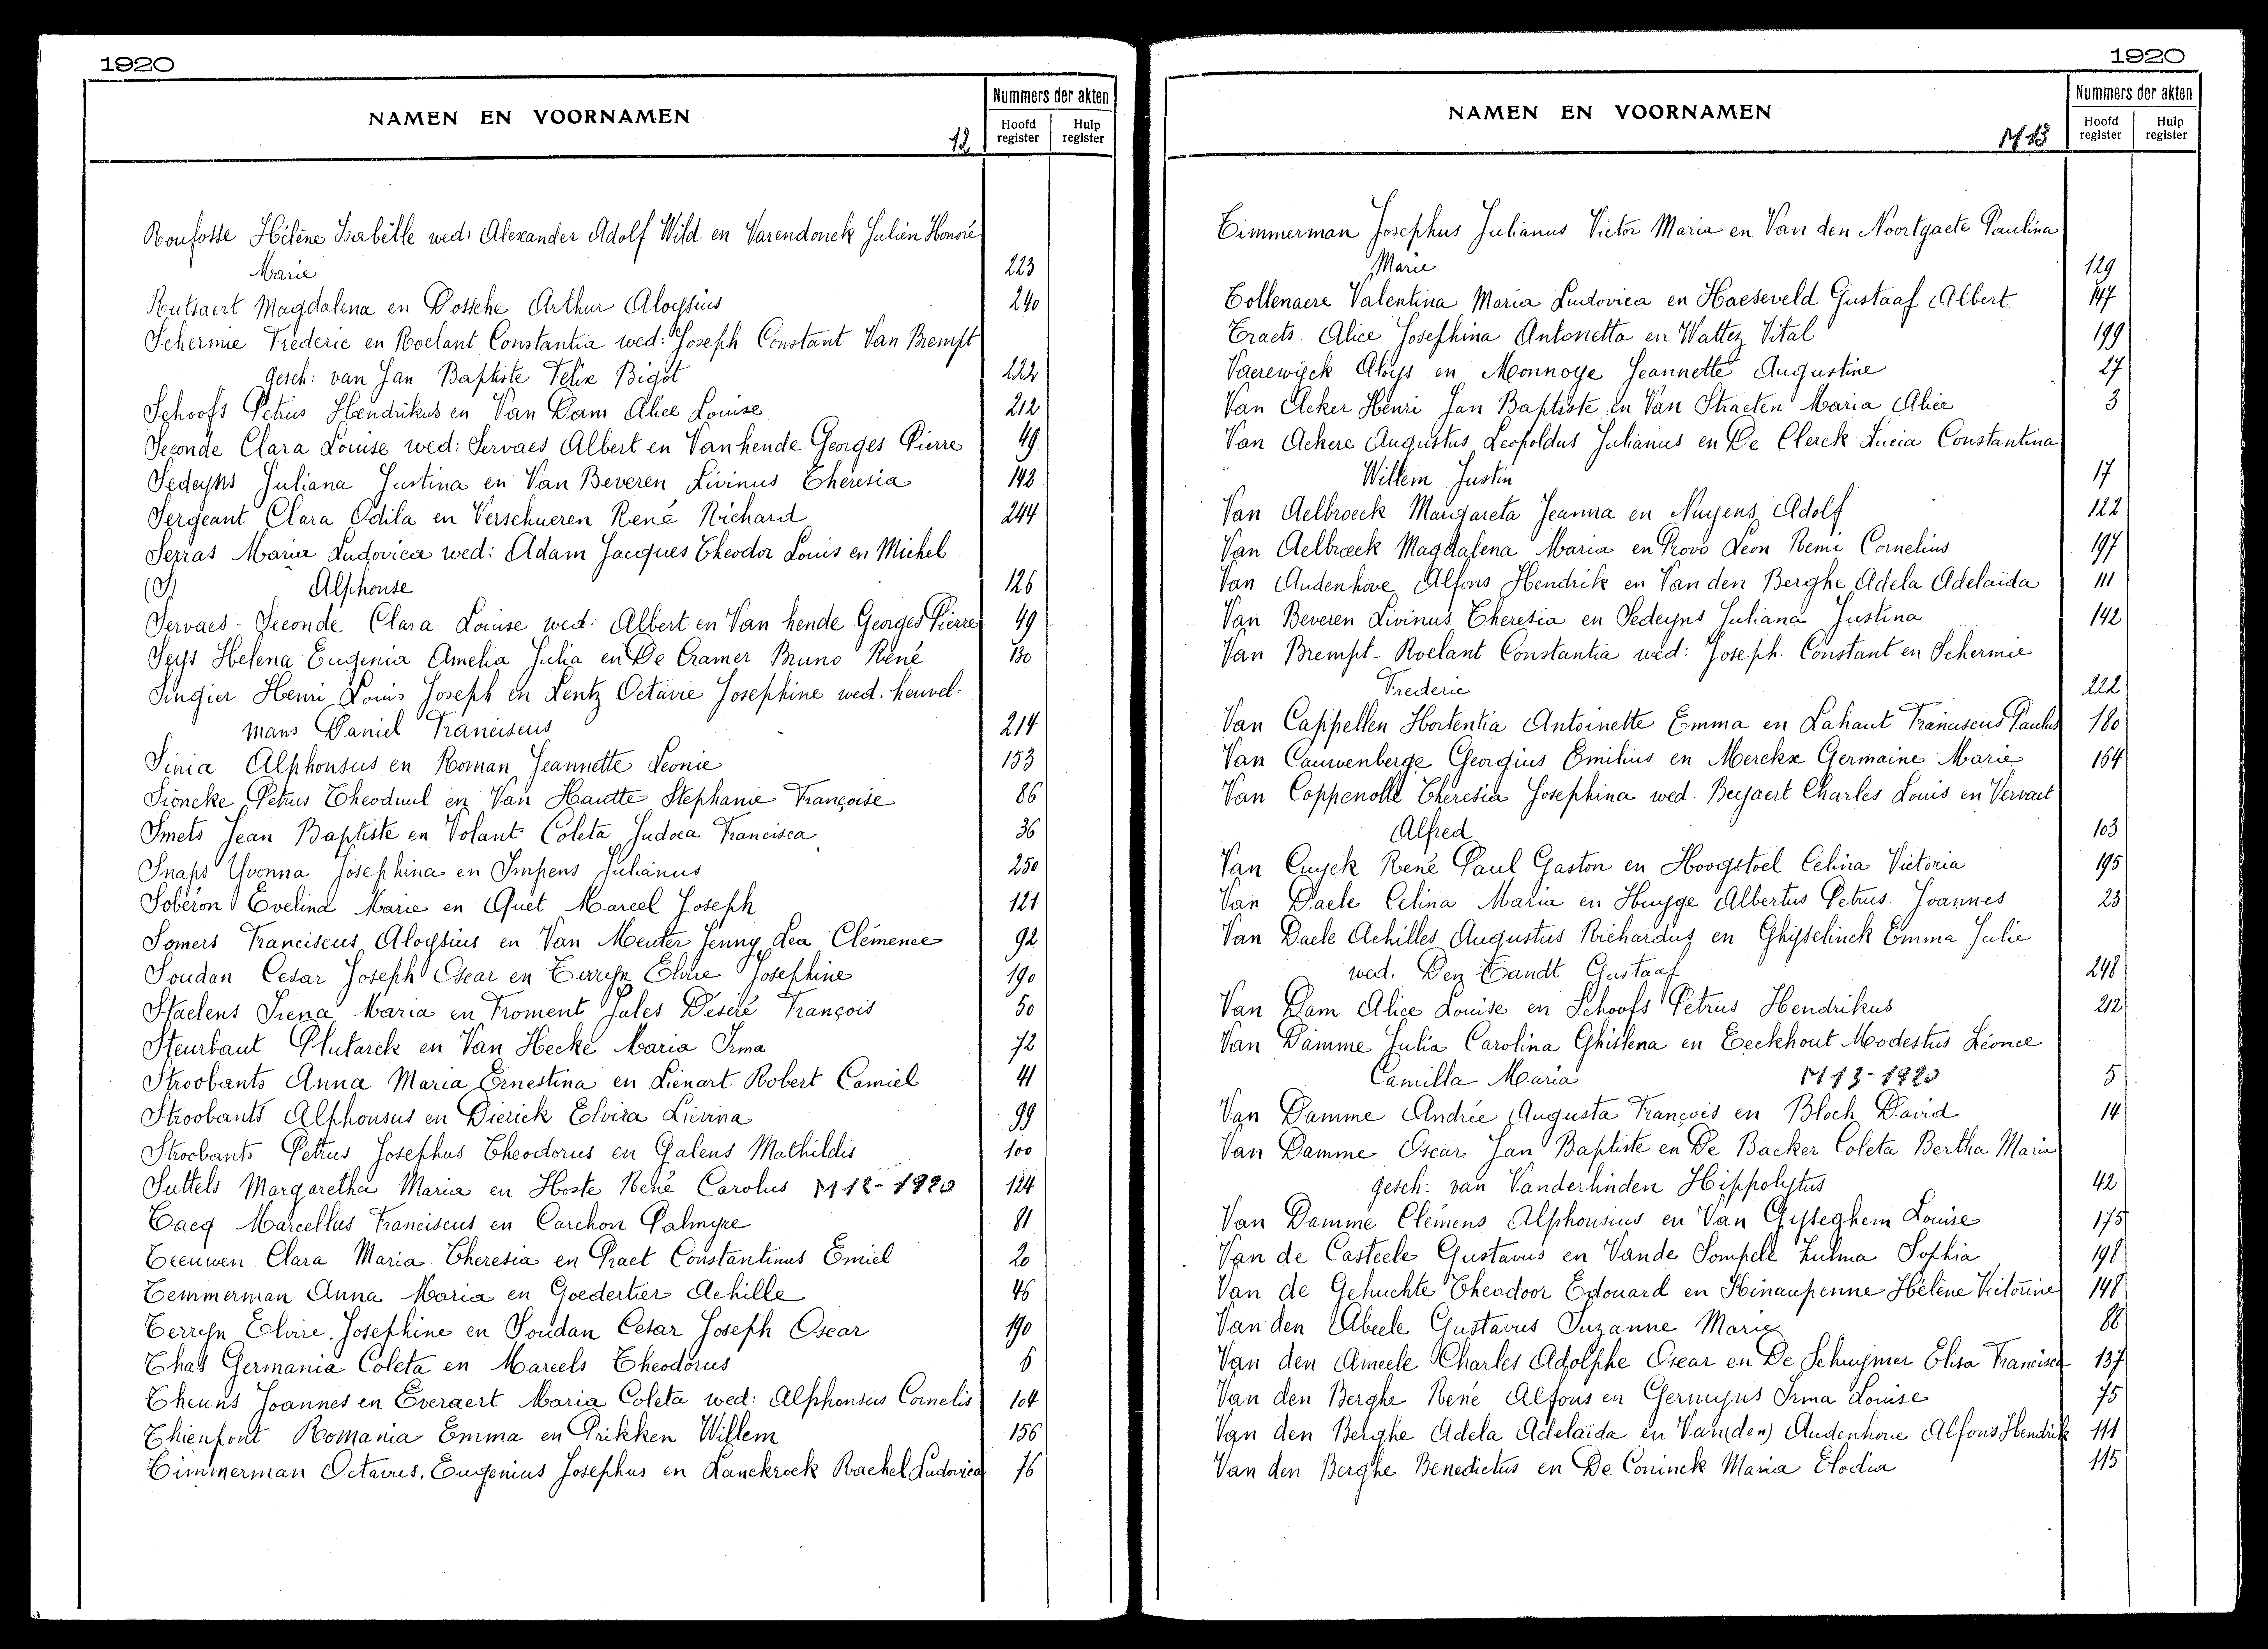 1920
NAMEN EN VOORNAMEN
12
Nummers der akten
Hoofd register
Hulp register
Ronfosse Hélène Isabelle wed: Alexander Adolf Wild en Varendonck Julien Honoré
Marie 223
Rutsaert Magdalena en Dossche Arthur Aloysius 240
Schermie Frederic en Roelant Constantia wed: Joseph Constant Van Brempt
gesch: van Jan Baptiste Felix Bigot 222
Schoofs Petrus Hendrikus en Van Dam Alice Louise 212
Seconde Clara Louise wed: Servaes Albert en Vanhende Georges Pierre 49
Sedeyns Juliana Justina en Van Beveren Livinus Theresia 142
Sergeant Clara Odila en Verschueren René Richard 244
Serras Maria Ludovica wed: Adam Jacques Theodor Louis en Michel
(S) Alphonse 126
Servaes - Seconde Clara Louise wed: Albert en Van hende Georges Pierre 49
Seys Helena Eugenia Amelia Julia en De Cramer Bruno René 130
Singier Henri Louis Joseph en Lentz Octavie Josephine wed. heuvel-
mans Daniel Franciscus 214
Sinia Alphonsus en Roman Jeannette Leonie 153
Sioncke Petrus Theoduul en Van Hautte Stephanie Françoise 86
Smets Jean Baptiste en Volant Coleta Judoca Francisca 36
Snaps Yvonna Josephina en Impens Julianus 250
Soberon Evelina Marie en Quet Marcel Joseph 121
Somers Franciscus Aloysius en Van Meuter Jenny Lea Clémence 92
Soudan Cesar Joseph Oscar en Terryn Elvire Josephine 190
Staelens Irena Maria en Froment Jules Desiré François 50
Steurbaut Plutarck en Van Hecke Maria Irma 72
Stroobants Anna Maria Ernestina en Lienart Robert Camiel 41
Stroobants Alphonsus en Dierick Elvira Lievina 99
Stroobants Petrus Josephus Theodorus en Galens Mathildis 100
Suttels Margaretha Maria en Hoste René Carolus M12-1920 124
Tacq Marcellus Franciscus en Carchon Palmyre 81
Teeuwen Clara Maria Theresia en Praet Constantinus Emiel 20
Temmerman Anna Maria en Goedertier Achille 46
Terryn Elvire Josephine en Soudan Cesar Joseph Oscar 190
Thas Germania Coleta en Marcels Theodorus 6
Theuns Joannes en Everaert Maria Coleta wed: Alphonsus Cornelis 104
Thienpont Romania Emma en Prikken Willem 156
Timmerman Octavus, Eugenius Josephus en Lanckrock Rachel Ludovica 76
1920
NAMEN EN VOORNAMEN
M13
Nummers der akten
Hoofd register
Hulp register
Timmerman Josephus Julianus Victor Maria en Van den Noortgaete Paulina
Marie 129
Tollenaere Valentina Maria Ludovica en Haeseveld Gustaaf Albert 147
Traets Alice Josephina Antonetta en Wattez Vital 199
Vaerewijck Aloys en Monnoye Jeannette Augustine 27
Van Acker Henri Jan Baptiste en Van Straeten Maria Alice 3
Van Ackere Augustus Leopoldus Julianus en De Clerck Lucia Constantina
Willem Justin 17
Van Aelbroeck Margareta Jeanna en Nuyens Adolf 122
Van Aelbroeck Magdalena Maria en Provo Leon Remi Cornelius 197
Van Audenhove Alfons Hendrik en Van den Berghe Adela Adelaïda 111
Van Beveren Livinus Theresia en Sedeyns Juliana Justina 142
Van Brempt - Roelant Constantia wed: Joseph Constant en Schermie
Frederic 222
Van Cappellen Hortentia Antoinette Emma en Lahaut Franciscus Paulus 180
Van Cauwenberge Georgius Emilius en Merckx Germaine Marie 164
Van Coppenolle Theresia Josephina wed. Buysaert Charles Louis en Vervaet
Alfred 103
Van Cuyck René Paul Gaston en Hoogstoel Celina Victoria 195
Van Daele Celina Maria en Huyge Albertus Petrus Joannes 23
Van Daele Achilles Augustus Richardus en Ghyselinck Emma Julie
wed. Den Tandt Gustaaf 248
Van Dam Alice Louise en Schoofs Petrus Hendrikus 212
Van Damme Julia Carolina Ghislena en Eeckhout Modestus Léonce
Camilla Maria M13-1920 5
Van Damme Andrée Augusta François en Bloch David 14
Van Damme Oscar Jan Baptiste en De Backer Coleta Bertha Maria
gesch: van Vanderlinden Hippolytus 42
Van Damme Clémens Alphonsius en Van Gyseghem Louise 175
Van de Casteele Gustavus en Vande Sompele Zulma Sophia 198
Van de Gehuchte Theodoor Edouard en Hinaupenne Hélène Victorine 148
Van den Abeele Gustavus Suzanne Marie 88
Van den Ameele Charles Adolphe Oscar en De Schuymer Elisa Francisca 137
Van den Berghe René Alfons en Germyns Irma Louise 75
Van den Berghe Adela Adelaïda en Van(den) Audenhove Alfons Hendrik 111
Van den Berghe Benedictus en De Coninck Maria Elodia 115